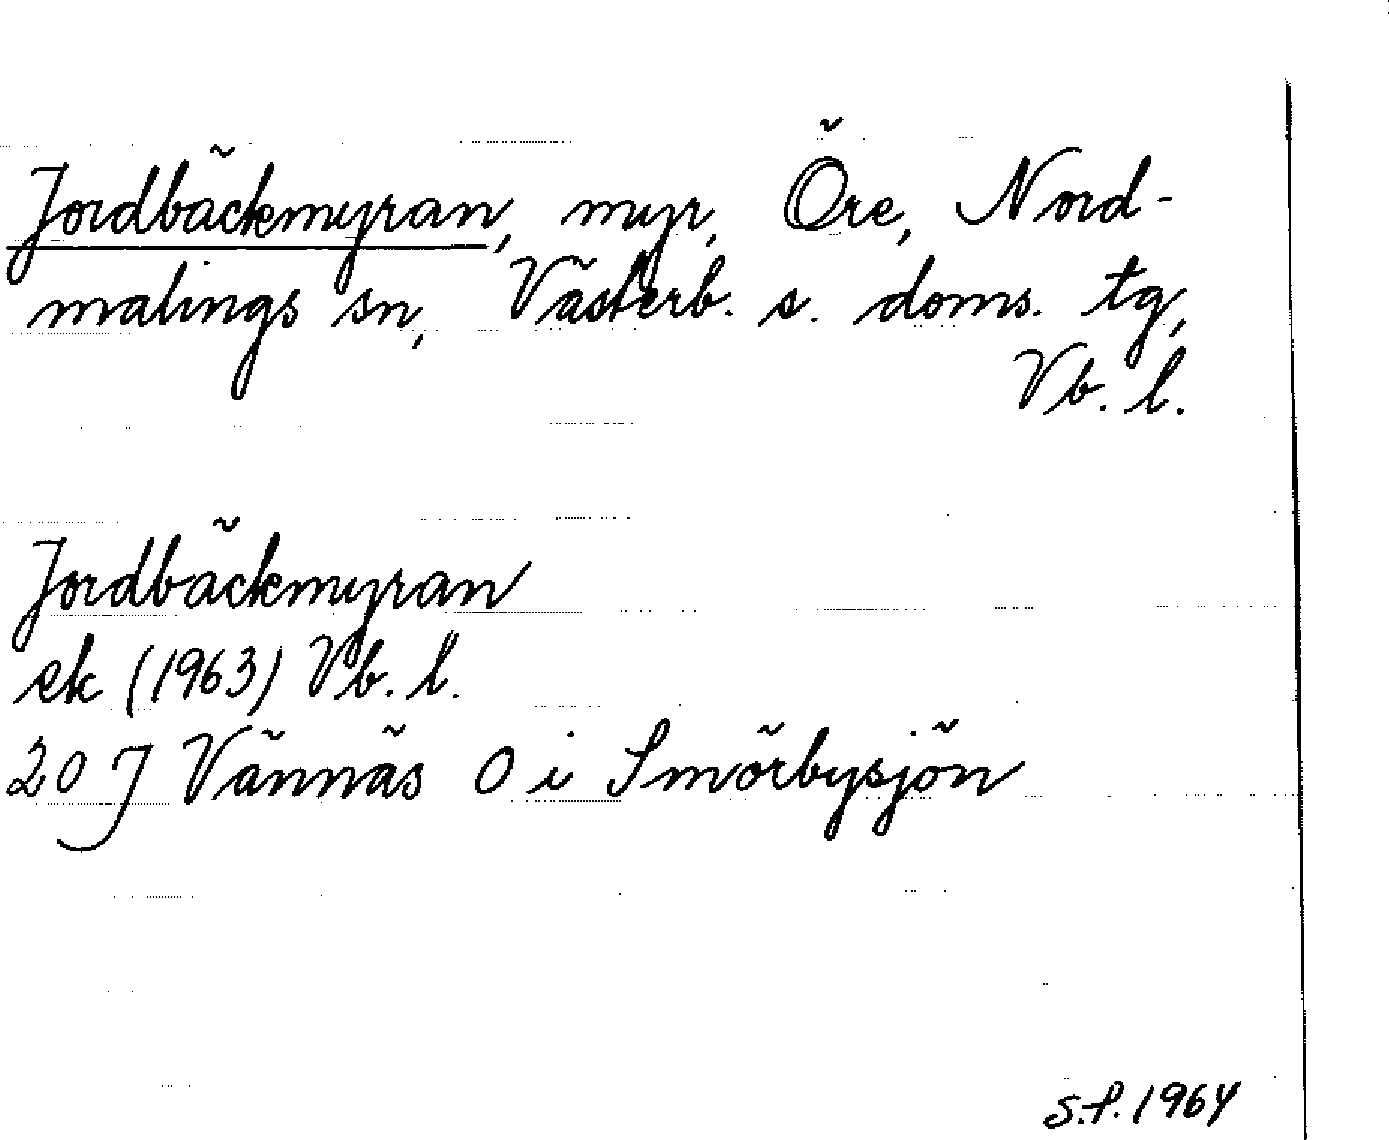 Jordbäckmyran, myr, Öre, Nord-
malings sn, Västerb. s. doms. tg,
Vb. l.
Jordbäckmyran
ek (1963) Vb. l.
20 J Vännäs O i Smörbysjön
S.P. 1964